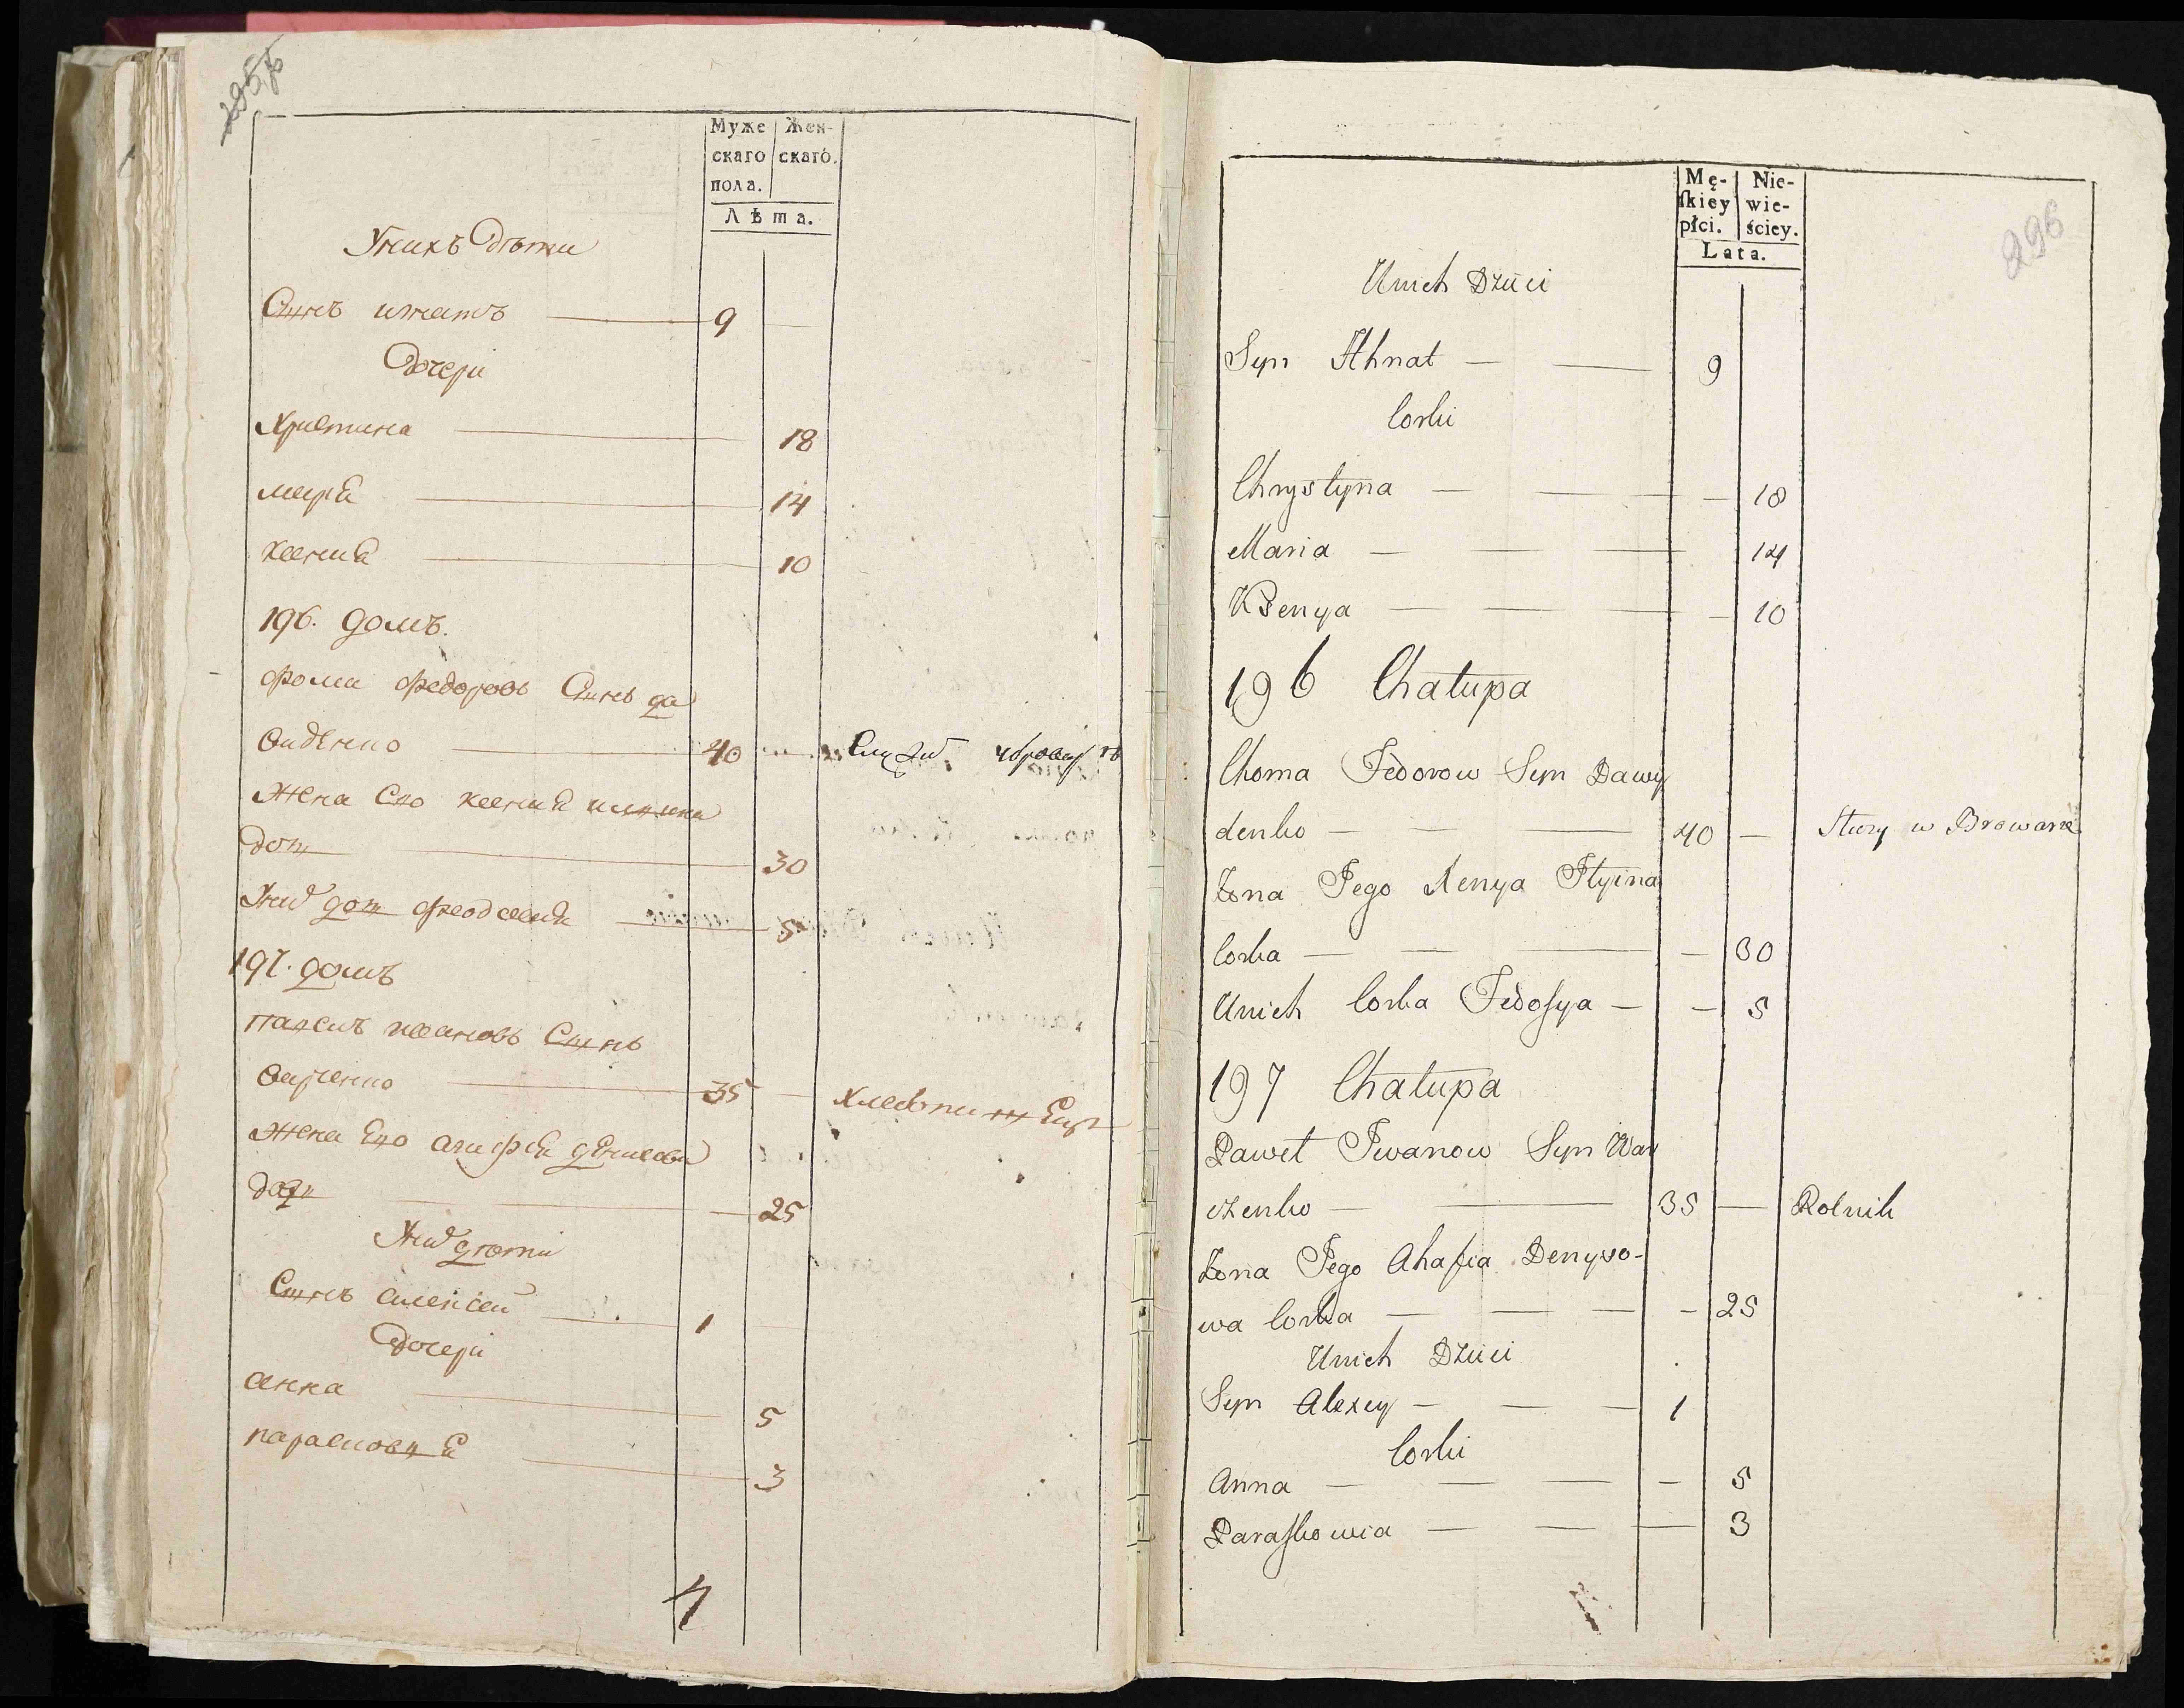 Муже Жен-
скаго скаго.
пола.
Лѣта.
У них дѣти
Сынъ игнатъ 9
дочери
христина 18
мариа 14
ксениа 10
196. домъ.
фома федоровъ Сынъ да
виденко 40
жена Его ксениа
дочь 30
У них дочь феодосиа 5
197. домъ
павелъ ивановъ Сынъ
35
жена Его агафиа денисова
дочь 25
У них дети
Сынъ алексей 1
дочери
анна 5
парасковиа 3
4
296
Mę- Nie-
ſkiey wie-
płci. ściey.
Lata.
Unich Dzieci
Syn Ihnat — — 9
Corki
Chrystyna — — — — 18
Maria — — — 14
Ksenya — — — — 10
196 Chałupa
Choma Fedorow Syn Dawy
denko — — — 40 — Słuzy w Browarze
Zona Jego Xenya
Corka — — — — 30
Unich Corka Fedoſya — — 5
197 Chałupa
Paweł Iwanow Syn
— — 35 — Rolnik
Zona Jego Ahafia Denyso-
wa Corka — — — — 25
Unich Dzieci
Syn Alexey — — — 1
Corki
Anna — — — — 5
Paraſkowia — — — 3